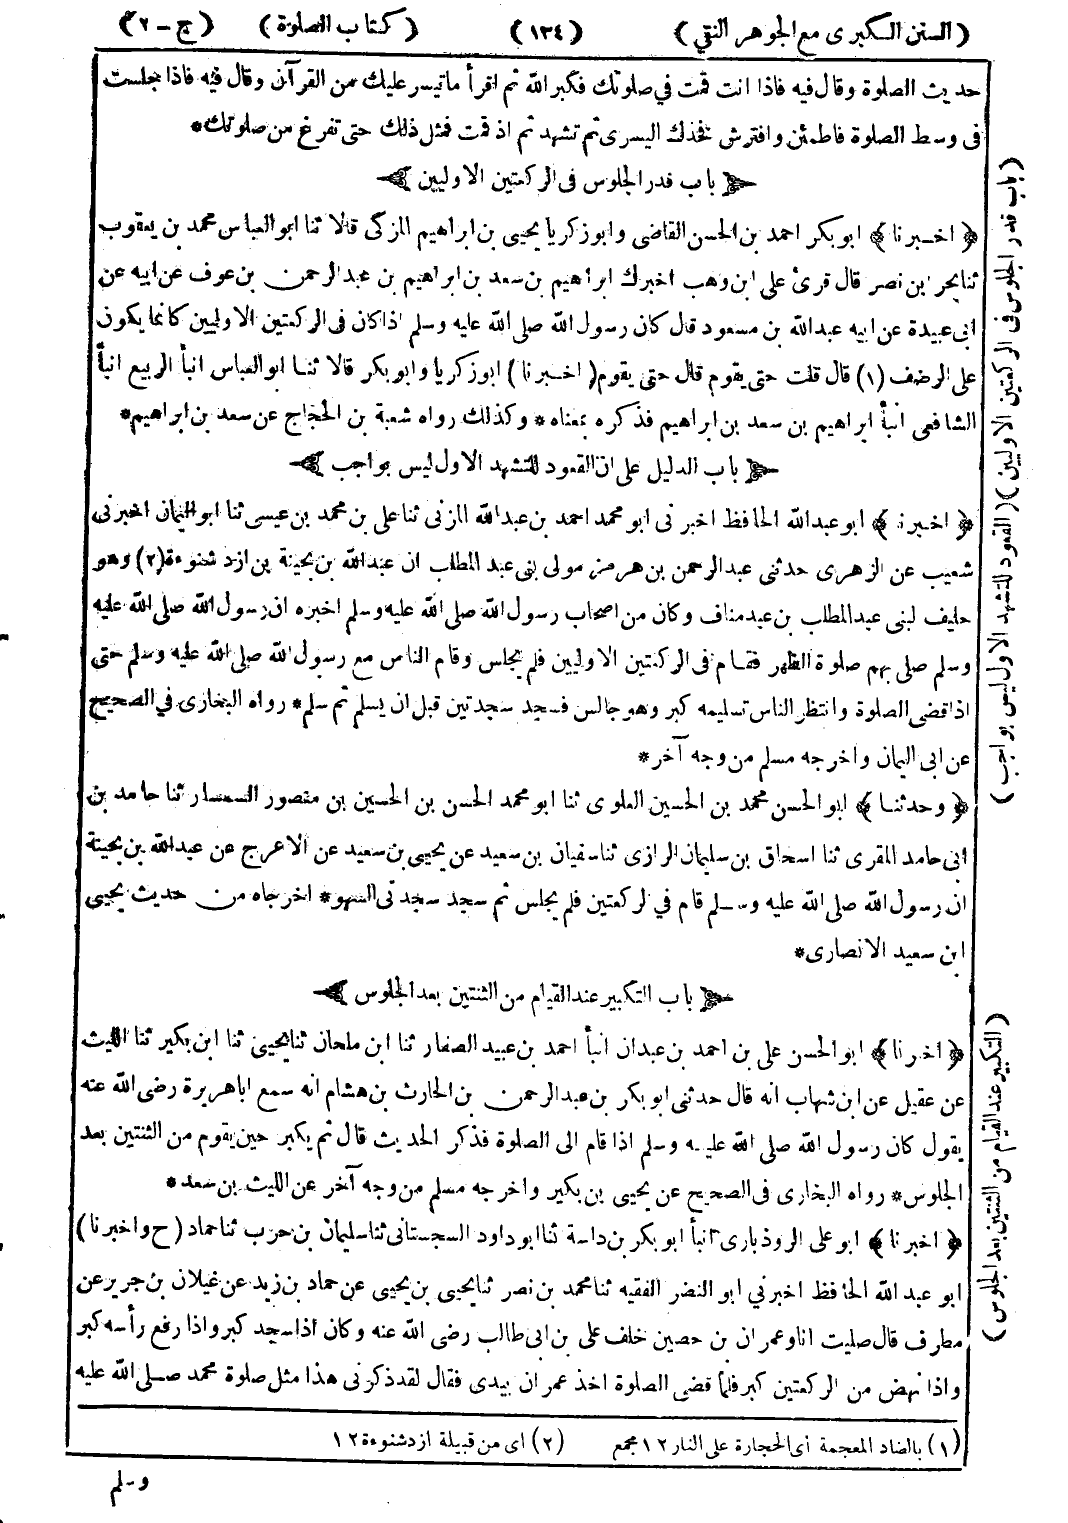 (السنن الكبرى مع الجوهر النقي) (١٣٤) (كتاب الصلوة) (ج-٢)
حديث الصلوة وقال فيه فاذا انت قمت في صلوتك فكبر الله ثم اقرأ ما تيسر عليك من القرآن وقال فيه فاذا جلست
فى وسط الصلوة فاطمئن وافترش فخذك اليسرى ثم تشهد ثم اذ قمت فمثل ذلك حتى تفرغ من صلوتك*
باب قدر الجلوس فى الركعتين الاوليين
﴿اخبرنا﴾ ابو بكر احمد بن الحسن القاضى وابو زكريا يحيى بن ابراهيم المزكى قالا ثنا ابو العباس محمد بن يعقوب
ثنا بحر ابن نصر قال قرئ على ابن وهب اخبرك ابراهيم بن سعد بن ابراهيم بن عبد الرحمن بن عوف عن ابيه عن
ابى عبيدة عن ابيه عبدالله بن مسعود قال كان رسول الله صلى الله عليه وسلم اذا كان فى الركعتين الاوليين كانما يكون
على الرضف (١) قال قلت حتى يقوم قال حتى يقوم (اخبرنا) ابو زكريا وابو بكر قالا ثنا ابو العباس انبأ الربيع انبأ
الشافعى انبأ ابراهيم بن سعد بن ابراهيم فذكره بمعناه* وكذلك رواه شعبة بن الحجاج عن سعد بن ابراهيم*
باب الدليل على ان القعود للتشهد الاول ليس بواجب
﴿اخبرنا﴾ ابو عبدالله الحافظ اخبر نى ابو محمد احمد بن عبدالله المزنى ثنا على بن محمد بن عيسى ثنا ابو اليمان اخبرنى
شعيب عن الزهرى حدثنى عبد الرحمن بن هرمز مولى بنى عبد المطلب ان عبدالله بن بحينة بن ازد شنوءة (٢) وهو
حليف لبنى عبد المطلب بن عبد مناف وكان من اصحاب رسول الله صلى الله عليه وسلم اخبره ان رسول الله صلى الله عليه
وسلم صلى بهم صلوة الظهر فقام فى الركعتين الاوليين فلم يجلس وقام الناس مع رسول الله صلى الله عليه وسلم حتى
اذا قضى الصلوة وانتظر الناس تسليمه كبر وهو جالس فسجد سجدتين قبل ان يسلم ثم سلم* رواه البخارى في الصحيح
عن ابى اليمان واخرجه مسلم من وجه آخر*
﴿وحدثنا﴾ ابو الحسن محمد بن الحسين العلوى ثنا ابو محمد الحسن بن الحسين بن منصور السمسار ثنا حامد بن
ابى حامد المقرى ثنا اسحاق بن سليمان الرازى ثنا سفيان بن سعيد عن يحيى بن سعيد عن الاعرج عن عبدالله بن بحينة
ان رسول الله صلى الله عليه وسلم قام في لركعتين فلم يجلس ثم سجد سجدتى السهو* اخرجاه من حديث يحيى
ابن سعيد الانصارى*
باب التكبير عند القيام من الثنتين بعد الجلوس
﴿اخبرنا﴾ ابو الحسن على بن احمد بن عبدان انبأ احمد بن عبيد الصفار ثنا ابن ملحان ثنا يحيى ثنا ابن بكير ثنا الليث
عن عقيل عن ابن شهاب انه قال حدثنى ابو بكر بن عبد الرحمن بن الحارث بن هشام انه سمع اباهريرة رضى الله عنه
يقول كان رسول الله صلى الله عليه وسلم اذا قام الى الصلوة فذكر الحديث قال ثم يكبر حين يقوم من الثنتين بعد
الجلوس* رواه البخارى فى الصحيح عن يحيى بن بكير واخرجه مسلم من وجه آخر عن الليث بن سعد*
﴿اخبرنا﴾ ابو على الروذبارى انبأ ابو بكر بن داسة ثنا ابو داود السجستانى ثنا سليمان بن حرب ثنا حماد (ح واخبرنا)
ابو عبد الله الحافظ اخبرني ابو النضر الفقيه ثنا محمد بن نصر ثنا يحيى بن يحيى عن حماد بن زيد عن غيلان بن جرير عن
مطرف قال صليت انا وعمران بن حصين خلف على بن ابى طالب رضى الله عنه وكان اذا سجد كبر واذا رفع رأسه كبر
واذا نهض من الركعتين كبر فلما قضى الصلوة اخذ عمران بيدى فقال لقد ذكرنى هذا مثل صلوة محمد صلى الله عليه
(١) بالضاد المعجمة اى الحجارة على النار ١٢ مجمع (٢) اى من قبيلة ازد شنوءة ١٢
وسلم
(باب قدر الجلوس فى الركعتين الاوليين) (القعود للتشهد الاول ليس بواجب)
(التكبير عند القيام من الثنتين بعد الجلوس)